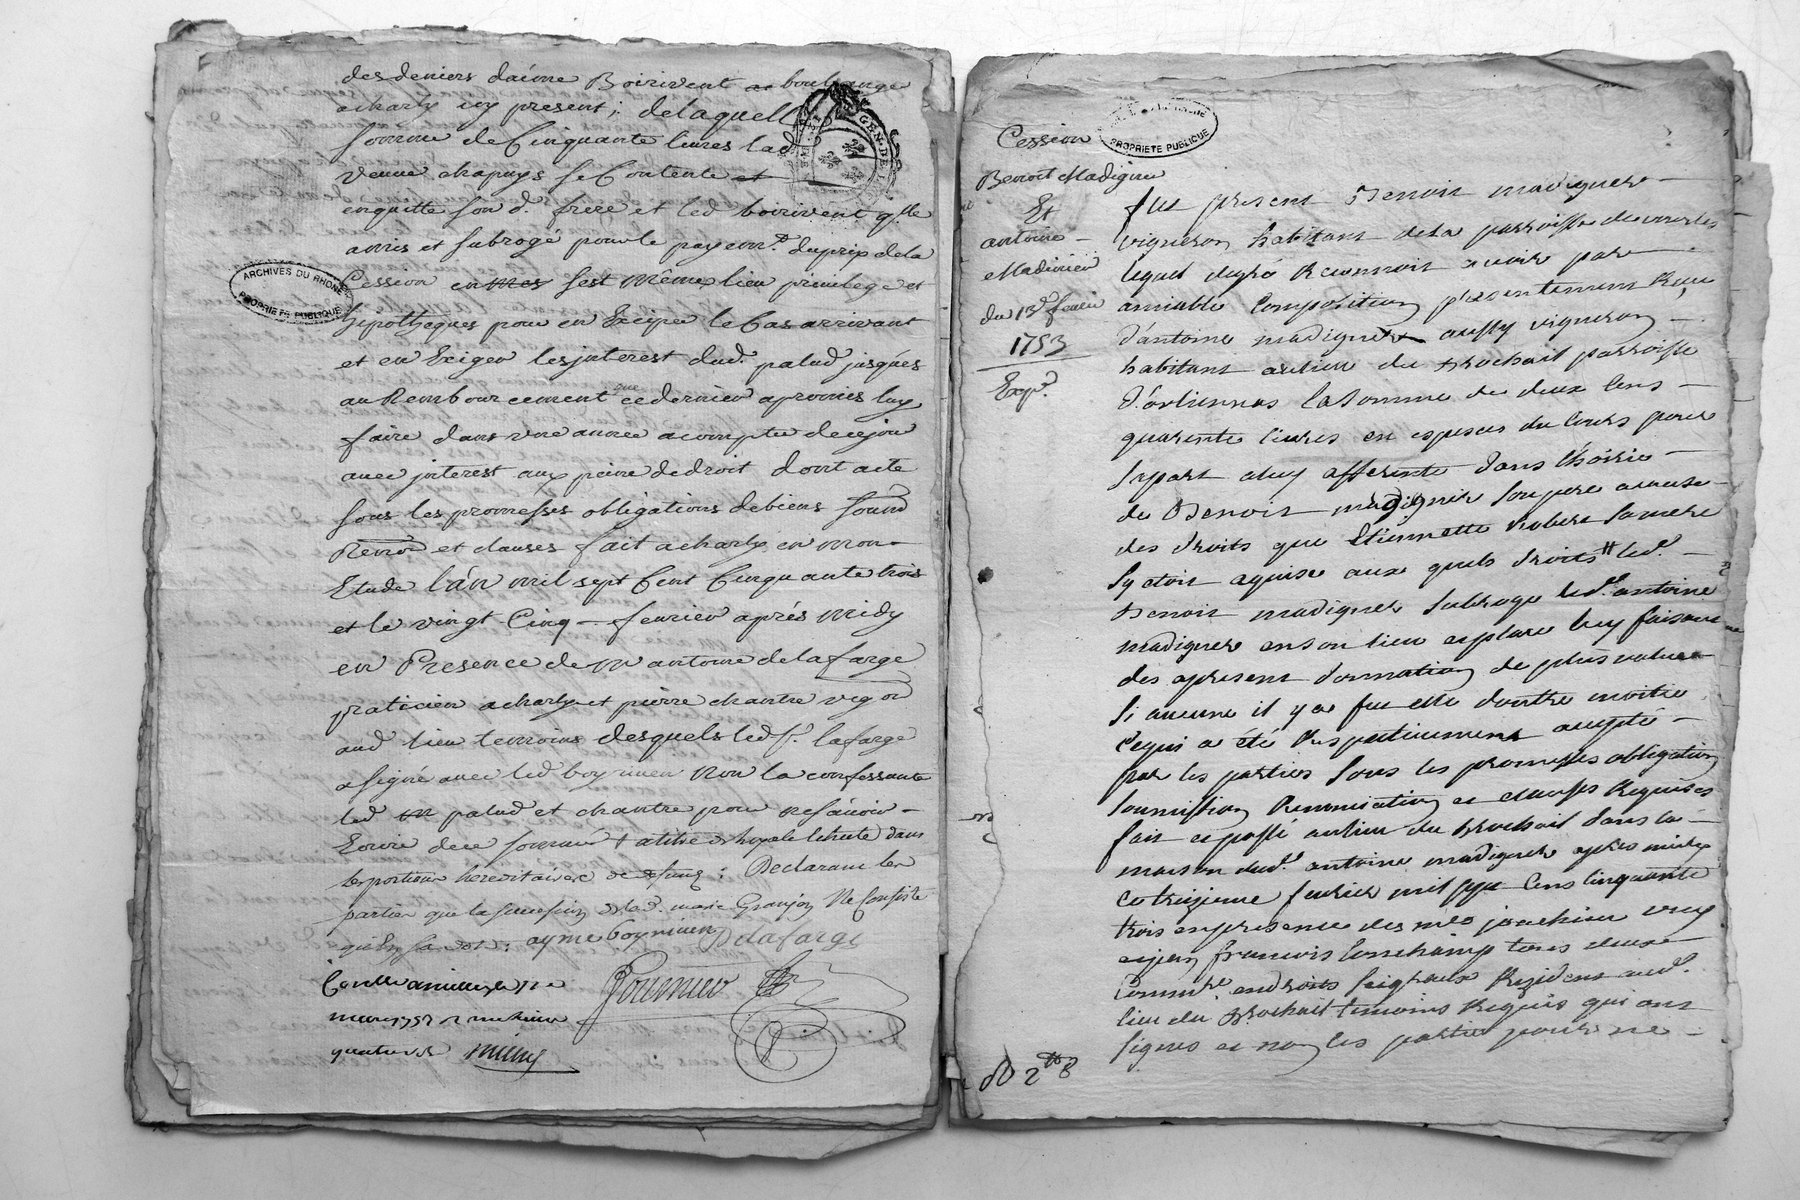 des deniers daime Boirivent
acharly icy present; delaquelle
somme de Cinquante livres lad
veuve chapuys se Contente et
enquitte son d. frere et led boirivent
mis et subrogé pour le payem.t du prix de la
Cession en mes sest même lieu privilege et
hipotheques pour en Exciper le Cas arrivant
et en Exiger les interest dud. palud jusques
au Rembourcement que cedernier a promis luy
faire dans une année acompter de cejour
avec interest aux peine de droit dont acte
sous les promesses obligations de biens soumd
Renon et clauses fait a charly en mon
Etude l'an mil sept Cent Cinquante trois
et le vingt Cinq fevrier aprés midy
en Presence de m antoine delafarge
praticien a charly et pierre chantre vigon
aud lieu temoins desquels led s.r lafarge
a signé avec led boyriven non la confessante
led palud et chantre pour ne sçavoir
Ecrire de ce sommé
portion hereditaire Declarant les
parties que la d. marie Granjon Ne Consiste
ayme boyriven Delafarge
Fournier
ARCHIVES DU RHONE
PROPRIETE PUBLIQUE
GEN. DE
Cession
Benoit Madignier
Et
antoine
Madinier
du 13.e fevrier
1753
Exp.é
PROPRIETE PUBLIQUE
fut present Benoit madignier
vigneron habitant de la parroisse de
lequel degré Reconnoit avoir par
amiable Composition presentement Reçu
d'antoine madignier aussy vigneron
habitant au lieu du Brochait parroisse
d'orlienas la somme de deux Cens
quarente livres en especes du Cours pour
sa part a luy afferente dans l'hoirie
de Benoit madignier son pere a cause
des droits que Etiennette Robert sa mere
sy etoit aquise aux quels droits led.
Benoit madignier subroge led. antoine
madignier en son lieu et place luy faisant
des apresent donnation de plus value
si aucune il y a fut elle d'outre moitie
Ce qui a été respectivement accepté
par les parties sous les promesses obligation
soumission Renonciation et clauses Requises
fait et passé au lieu du Brochait dans la
maison dud. antoine madignier apres midy
ce treizieme fevrier mil sept Cens Cinquante
trois en presence des m.es joachim
et jean francois Conchamp tous deux
Resident aud.
lieu du Brochait temoins Requis qui ont
signés et non les parties pour ne